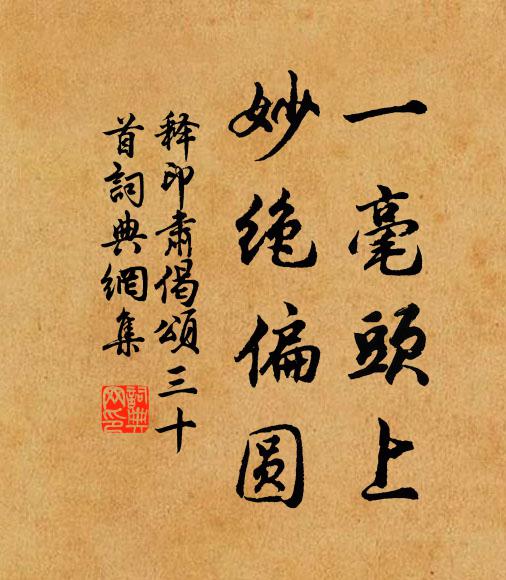 一毫頭上
妙绝偏圆
释印肃偈頌三十
首詞典網集
詞典
网印